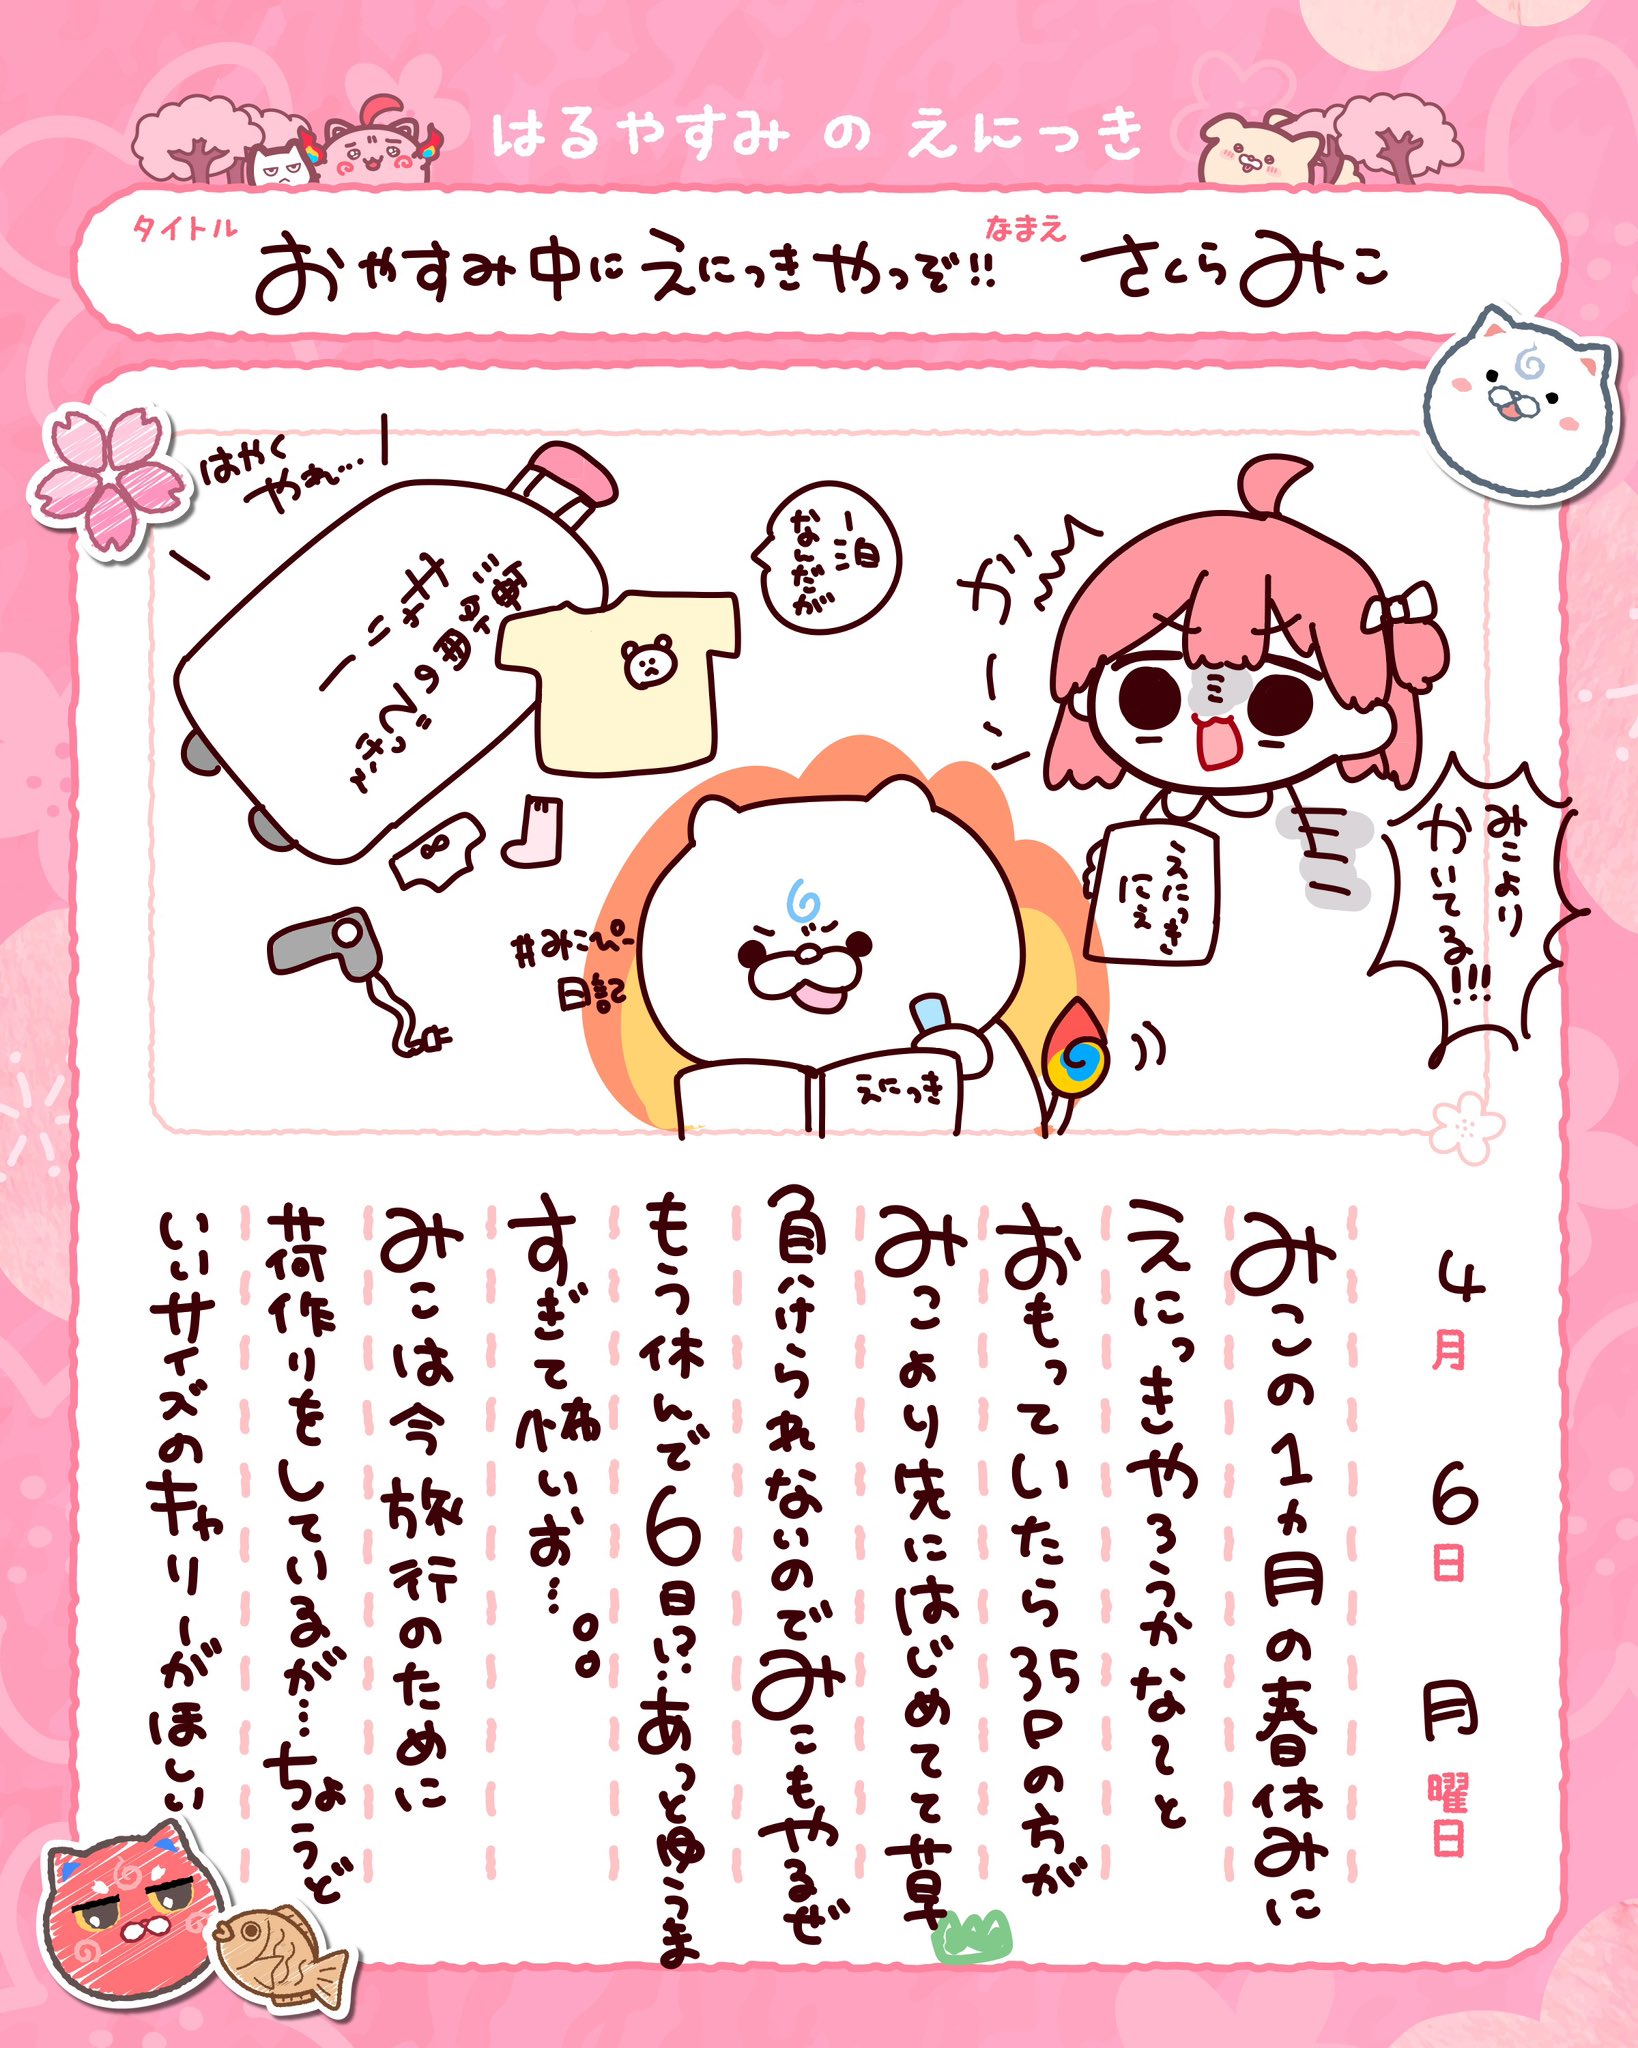 はるやすみ の えにっき
タイトル
おやすみ中にえにっきやっぞ!!
なまえ
さくらみこ
はやく
やれ…
一泊
なんだが
ガーーン
みこより
かいてる!!!
えにっき
にえ
#みこぴー
日記
えにっき
4月6日月曜日
みこの1ヵ月の春休みに
えにっきやろうかな～と
おもっていたら35Pの方が
みこより先にはじめてて草
負けられないのでみこもやるぜ
もう休んで6日!?…あっとゆうま
すぎて怖いお…。。
みこは今旅行のために
荷作りをしているが…ちょうど
いいサイズのキャリーがほしい